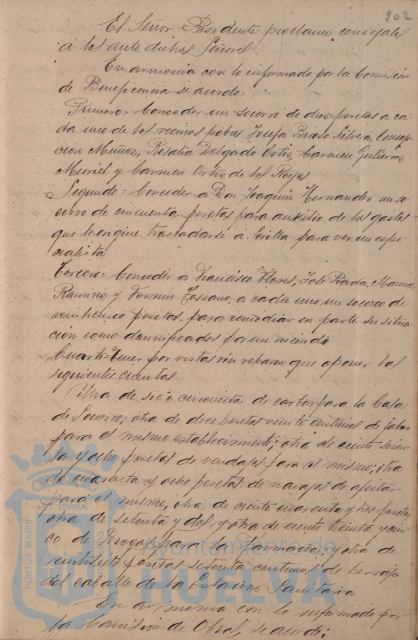 202
El Señor Presidente proclama concejales
á los ante dichos Señores.
En armonia con lo informado por la Comisión
de Beneficencia se acordó:
Primero = Conceder un socorro de dos pesetas á ca
da uno de los vecinos pobres Josefa Bravo Silvera, Concep
cion Muñoz, Rosalia Delgado Ortiz, Carmen Gutierrez
Muriel y Carmen Ortiz de los Reyes
Segundo = Conceder á Don Joaquin Hernandez un so
corro de cincuenta pesetas para auxilio de los gastos
que le origine trasladarse á Sevilla para ver un espe
cialista
Tercero = Conceder á Francisco Flores, José Prada, Manuel
Ramirez y Fermin Toscano, á cada uno un socorro de
veinticinco pesetas, para remediar en parte su situa
ción como damnificados por un incendio
Cuarto = Tener por vistas sin reparo que oponer las
siguientes cuentas
Una de seis cincuenta de carbon para la Casa
de Socorro; otra de doce pesetas veinte centimos de jabon
para el mismo establecimiento; otra de ciento
y ocho pesetas de vendajes para el mismo; otra
de cuarenta y ocho pesetas de navajas de afeitar
para el mismo; otra de ciento cuarenta y tres pesetas
otra de setenta y dos y otra de ciento treinta y cin
co de Drogas para la farmacia; y otra de
veintiseis pesetas setenta centimos de herraje
del caballo de la Estación Sanitaria
En armonia con lo informado por
la Comisión de Obras se acordó:
PORTUS MARIS
Ayuntamiento de
HUELVA